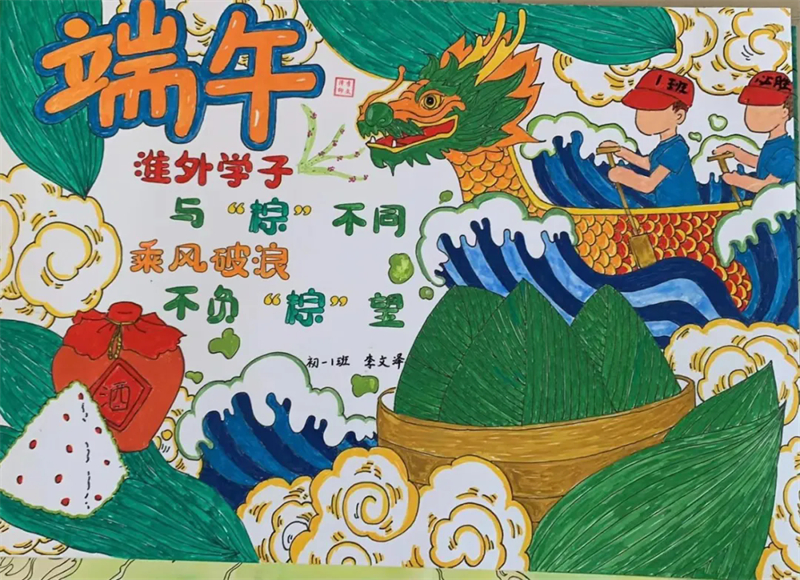 端午
淮外学子
与“棕”不同
乘风破浪
不负“棕”望
初一1班 李文泽
1班
必胜
酒